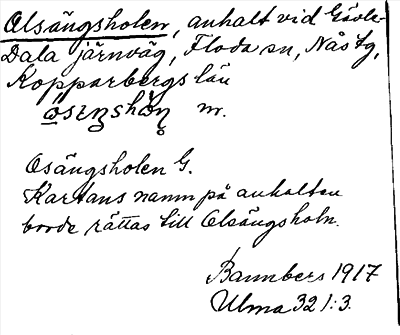 Olsängsholen, anhalt vid Gävle-
Dala järnväg, Floda sn, Nås tg,
Kopparbergs län
m.
Osängsholen G.
Kartans namn på anhalten
borde rättas till Olsängsholn.
Bannbers 1917
Ulma 321:3.